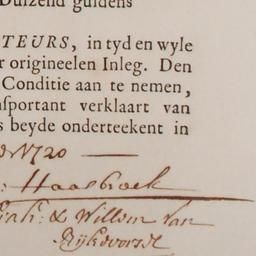 Duizend guldens
TEURS, in tyd en wyle
r origineelen Inleg. Den
Conditie aan te nemen,
nsportant verklaart van
s beyde onderteekent in
1720
Haasbroek
& Willem van